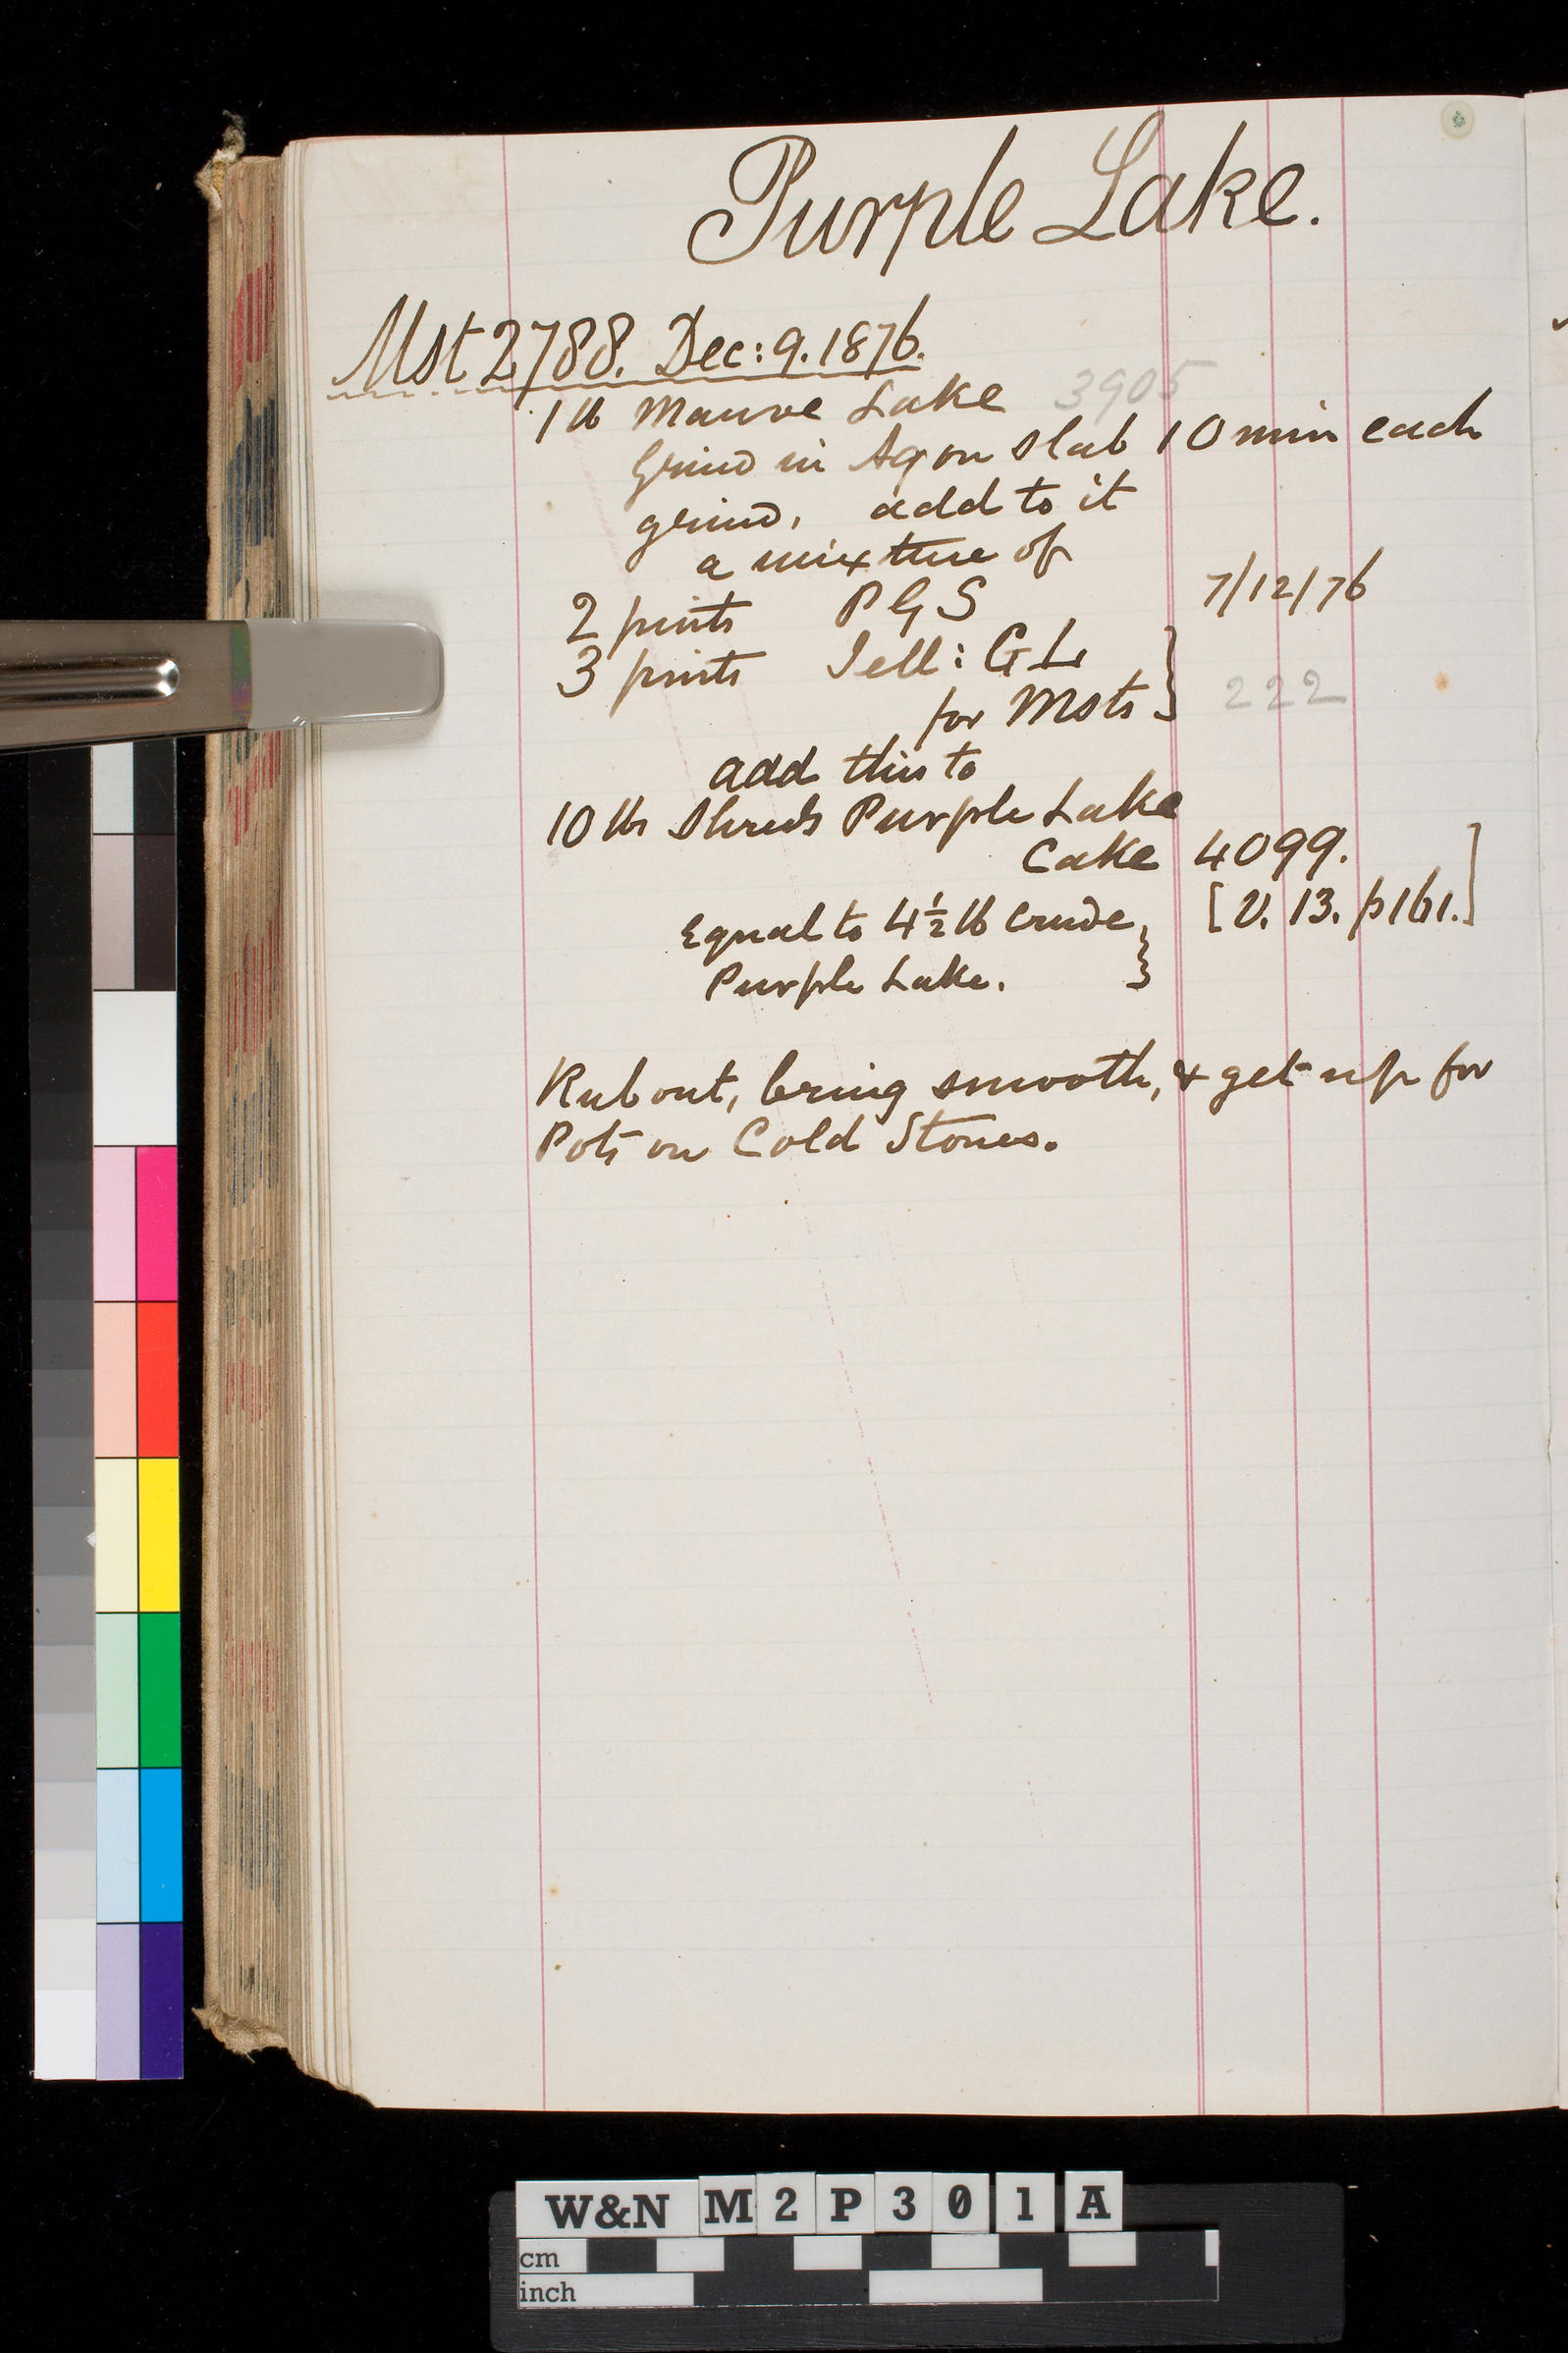 Purple Lake.
Mst 2788. Dec: 9. 1876.
1 lb Mauve Lake 3905
Grind in Aq on slab 10 min each
grind, add to it
a mixture of
2 pints P G S 7/12/76
3 pints Jell: G L
for Msts } 222
add this to
10 lbs Shreds Purple Lake
Cake 4099.
Equal to 4½ lb Crude [V. 13. p161.]
Purple Lake. }
Rub out, bring smooth, & get up for
Pots on Cold Stones.
W&N M2P301A
cm
inch